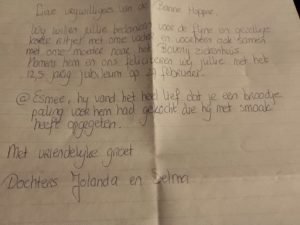 Lieve vrijwilligers van de Zonne Hoppper,
Wij willen jullie bedanken voor de fijne en gezellige
ritjes met onze vader en voorheen ook samen
met onze moeder naar het BovenIJ ziekenhuis.
Namens hem en ons feliciteren wij jullie met het
12,5 jarig jubileum op 29 februari.
@ Esmee, hij vond het heel lief dat je een broodje
paling voor hem had gekocht die hij met smaak
heeft opgegeten.
Met vriendelijke groet
Dochters Jolanda en Selma